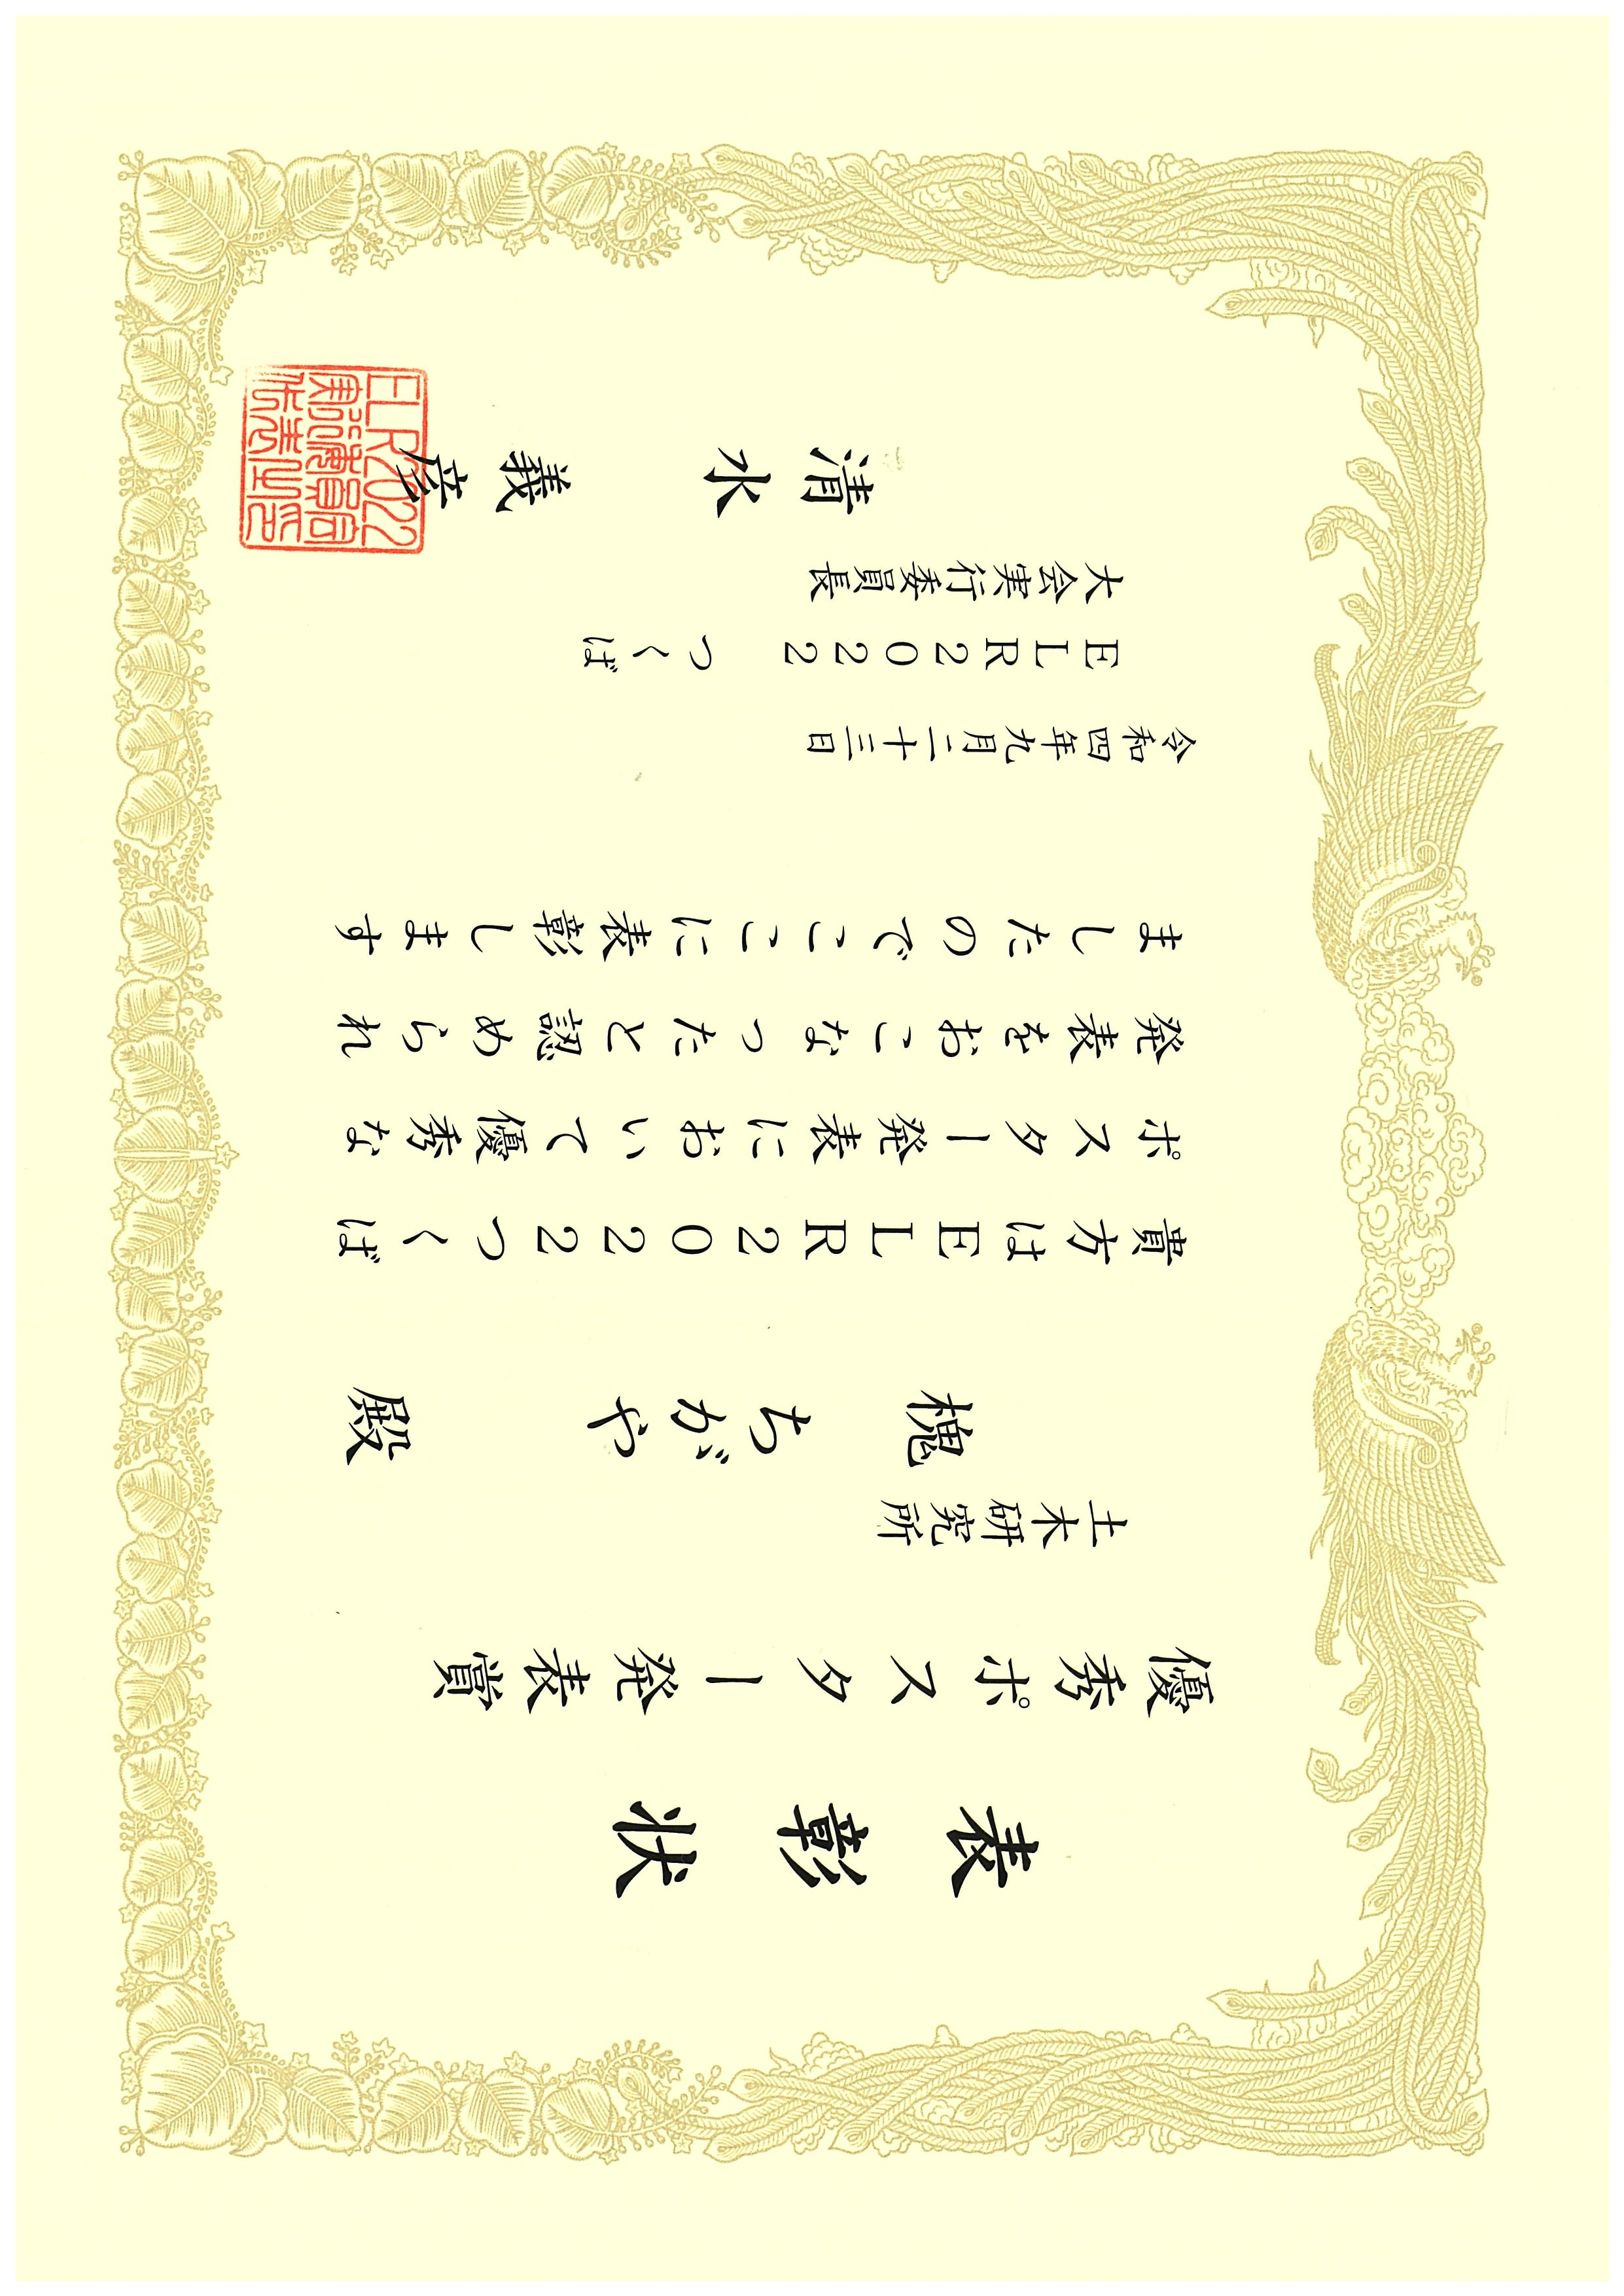 表彰状
優秀ポスター発表賞
土木研究所
槐 ちがや 殿
貴方はELR2022つくば
ポスター発表において優秀な
発表をおこなったと認められ
ましたのでここに表彰します
令和四年九月二十三日
ELR2022 つくば
大会実行委員長
清水 義彦